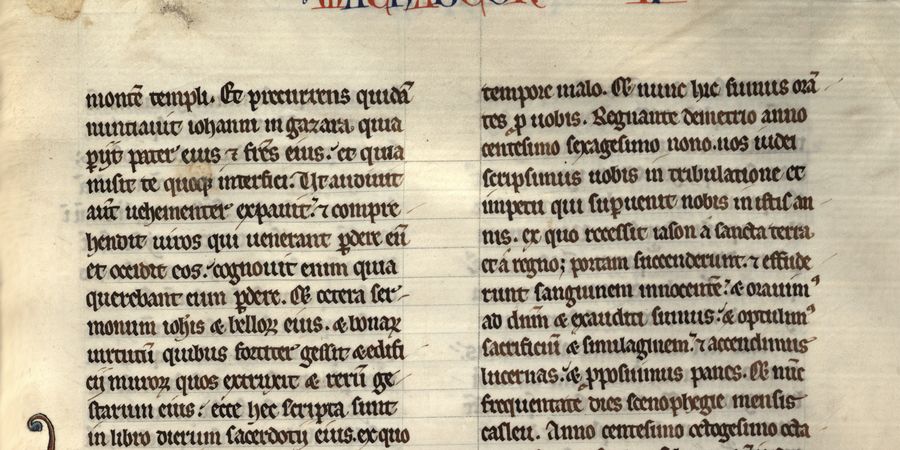 montē templi. Et precurrens quidā
nuntiauit iohanni in gazara quia
ꝑijt pater eius ⁊ frēs eius. et quia
misit te quoqꝫ interfici. Ut audiuit
aūt uehementer expauit. ⁊ compre
hendit uiros qui uenerant ꝑdere eū
et occidit eos. cognouit enim quia
querebant eum ꝑdere. Et cetera ser
monum ioh̄is & belloꝝ eius. & bonaꝝ
uirtutū quibus fortiter gessit & edifi
cij muroꝝ quos extruxit & rerū ge
starum eius. ecce hec scripta sunt
in libro dierum sacerdotij eius. ex quo
tempore malo. Et nunc hic sumus orā
tes ꝓ uobis. Regnante demetrio anno
centesimo sexagesimo nono. nos iudei
scripsimus uobis in tribulatione et
impetu qui suꝑuenit nobis in istis an
nis. ex quo recessit iason a sancta terra
et a regno; portam succenderunt. ⁊ effude
runt sanguinem innocentē. & orauimꝰ
ad dn̄m & exauditi sumus. & optulimꝰ
sacrificiū & similaginem. ⁊ accendimus
lucernas. & ꝓposuimus panes. Et nūc
frequentate dies scenophegie mensis
casleu. Anno centesimo octogesimo octa